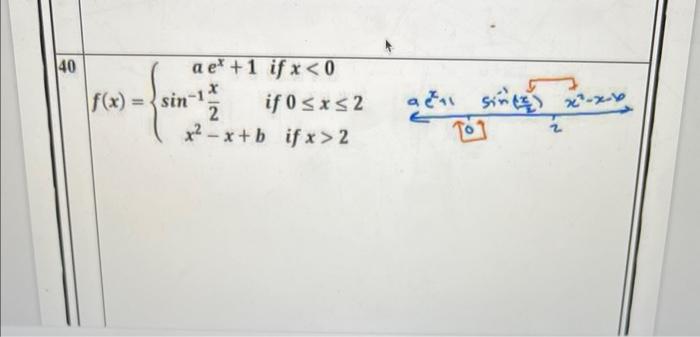 40
a eˣ + 1 if x < 0
f(x) = { sin⁻¹ x/2 if 0 ≤ x ≤ 2
x² − x + b if x > 2
a eˣ+1 sin⁻¹(x/2) x²-x-b
0 2